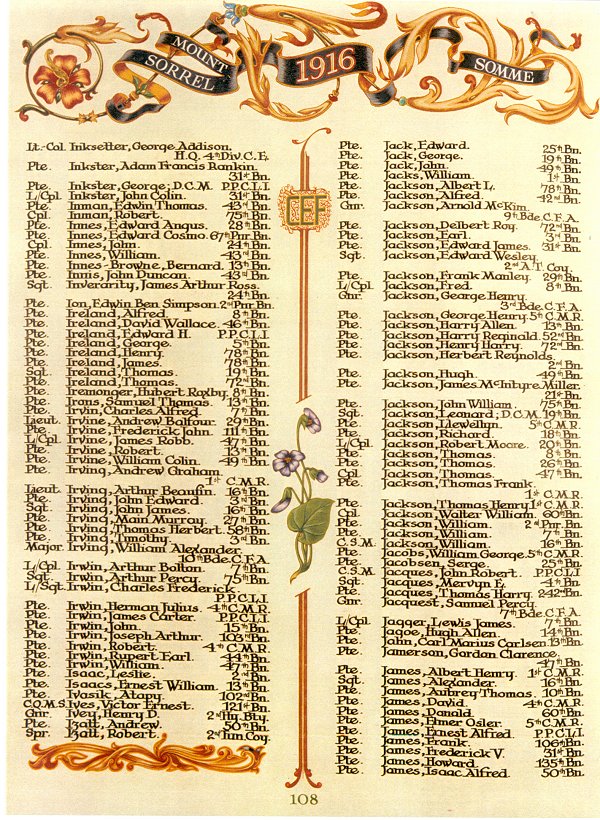 MOUNT SORREL
1916
SOMME
Lt.-Col. Inksetter, George Addison.
H.Q. 4th Div. C.E.
Pte. Inkster, Adam Francis Rankin.
31st Bn.
Pte. Inkster, George; D.C.M. P.P.C.L.I.
L/Cpl. Inkster, John Colin. 31st Bn.
Pte. Inman, Edwin Thomas. 43rd Bn.
Cpl. Inman, Robert. 75th Bn.
Pte. Innes, Edward Angus. 28th Bn.
Pte. Innes, Edward Cosmo. 67th Pnr. Bn.
Cpl. Innes, John. 24th Bn.
Pte. Innes, William. 43rd Bn.
Pte. Innes-Browne, Bernard. 13th Bn.
Pte. Innis, John Duncan. 43rd Bn.
Sgt. Inverarity, James Arthur Ross.
24th Bn.
Pte. Ion, Edwin Ben Simpson. 2nd Pnr. Bn.
Pte. Ireland, Alfred. 8th Bn.
Pte. Ireland, David Wallace. 46th Bn.
Pte. Ireland, Edward H. P.P.C.L.I.
Pte. Ireland, George. 5th Bn.
Pte. Ireland, Henry. 78th Bn.
Pte. Ireland, James. 78th Bn.
Sgt. Ireland, Thomas. 19th Bn.
Pte. Ireland, Thomas. 72nd Bn.
Pte. Iremonger, Hubert Roxby. 8th Bn.
Pte. Irons, Samuel Thomas. 13th Bn.
Pte. Irvin, Charles Alfred. 7th Bn.
Lieut. Irvine, Andrew Balfour. 29th Bn.
Pte. Irvine, Frederick John. 111th Bn.
L/Cpl. Irvine, James Robb. 47th Bn.
Pte. Irvine, Robert. 13th Bn.
Pte. Irvine, William Colin. 49th Bn.
Pte. Irving, Andrew Graham.
1st C.M.R.
Lieut. Irving, Arthur Beaufin. 16th Bn.
Pte. Irving, John Edward. 3rd Bn.
Sgt. Irving, John James. 16th Bn.
Pte. Irving, Main Murray. 27th Bn.
Pte. Irving, Thomas Herbert. 58th Bn.
Pte. Irving, Timothy. 3rd Bn.
Major. Irving, William Alexander.
10th Bde. C.F.A.
L/Cpl. Irwin, Arthur Bolton. 7th Bn.
Sgt. Irwin, Arthur Percy. 75th Bn.
L/Sgt. Irwin, Charles Frederick.
P.P.C.L.I.
Pte. Irwin, Herman Julius. 4th C.M.R.
Pte. Irwin, James Carter. P.P.C.L.I.
Pte. Irwin, John. 15th Bn.
Pte. Irwin, Joseph Arthur. 103rd Bn.
Pte. Irwin, Robert. 4th C.M.R.
Pte. Irwin, Rupert Earl. 44th Bn.
Pte. Irwin, William. 47th Bn.
Pte. Isaac, Leslie. 2nd Bn.
Pte. Isaacs, Ernest William. 13th Bn.
Pte. Ivasik, Atapy. 102nd Bn.
C.Q.M.S. Ives, Victor Ernest. 121st Bn.
Gnr. Ivey, Henry D. 2nd Hy. Bty.
Pte. Izatt, Andrew. 50th Bn.
Spr. Izatt, Robert. 2nd Tun. Coy.
CEF
Pte. Jack, Edward. 25th Bn.
Pte. Jack, George. 19th Bn.
Pte. Jack, John. 49th Bn.
Pte. Jacks, William. 1st Bn.
Pte. Jackson, Albert L. 78th Bn.
Pte. Jackson, Alfred. 42nd Bn.
Gnr. Jackson, Arnold McKim.
9th Bde. C.F.A.
Pte. Jackson, Delbert Roy. 72nd Bn.
Pte. Jackson, Earl. 3rd Bn.
Pte. Jackson, Edward James. 31st Bn.
Sgt. Jackson, Edward Wesley.
2nd A.T. Coy.
Pte. Jackson, Frank Manley. 29th Bn.
L/Cpl. Jackson, Fred. 8th Bn.
Gnr. Jackson, George Henry.
3rd Bde. C.F.A.
Pte. Jackson, George Henry. 5th C.M.R.
Pte. Jackson, Harry Allen. 13th Bn.
Pte. Jackson, Harry Reginald. 52nd Bn.
Pte. Jackson, Henry Harry. 72nd Bn.
Pte. Jackson, Herbert Reynolds.
2nd Bn.
Pte. Jackson, Hugh. 49th Bn.
Pte. Jackson, James McIntyre Miller.
21st Bn.
Pte. Jackson, John William. 75th Bn.
Sgt. Jackson, Leonard; D.C.M. 19th Bn.
Pte. Jackson, Llewellyn. 5th C.M.R.
Pte. Jackson, Richard. 18th Bn.
L/Cpl. Jackson, Robert Moore. 20th Bn.
Pte. Jackson, Thomas. 8th Bn.
Pte. Jackson, Thomas. 26th Bn.
Cpl. Jackson, Thomas. 47th Bn.
Pte. Jackson, Thomas Frank.
1st C.M.R.
Pte. Jackson, Thomas Henry. 1st C.M.R.
Cpl. Jackson Walter William. 60th Bn.
Pte. Jackson, William. 2nd Pnr. Bn.
Pte. Jackson, William. 7th Bn.
C.S.M. Jackson, William. 16th Bn.
Pte. Jacobs, William George. 5th C.M.R.
Pte. Jacobsen, Serge. 25th Bn.
C.S.M. Jacques, John Robert. P.P.C.L.I.
Sgt. Jacques, Mervyn E. 4th Bn.
Pte. Jacques, Thomas Harry. 242nd Bn.
Gnr. Jacquest, Samuel Percy.
7th Bde. C.F.A.
L/Cpl. Jagger, Lewis James. 7th Bn.
Pte. Jagoe, Hugh Allen. 14th Bn.
Pte. Jahn, Carl Marius Carlsen. 13th Bn.
Pte. Jamerson, Gordon Clarence.
47th Bn.
Pte. James, Albert Henry. 1st C.M.R.
Sgt. James, Alexander. 16th Bn.
Pte. James, Aubrey Thomas. 10th Bn.
Pte. James, David. 4th C.M.R.
Pte. James, Donald. 60th Bn.
Pte. James, Elmer Osler. 5th C.M.R.
Pte. James, Ernest Alfred. P.P.C.L.I.
Pte. James, Frank. 106th Bn.
Pte. James, Frederick V. 31st Bn.
Pte. James, Howard. 135th Bn.
Pte. James, Isaac Alfred. 50th Bn.
108